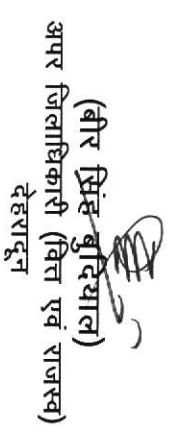 (वीर सिंह बुदियाल)
अपर जिलाधिकारी (वित्त एवं राजस्व)
देहरादून